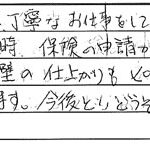 丁寧なお仕事をして
時、保険の申請か
壁の仕上がりも
ます。今後ともどうぞ